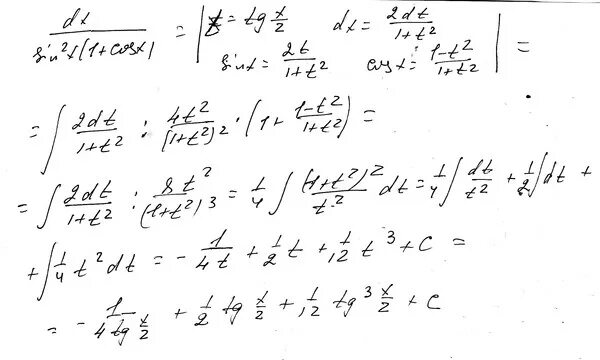 dx/(sin²x(1+cosx)) = | t = tg x/2   dx = 2dt/(1+t²)   sinx = 2t/(1+t²)   cosx = (1-t²)/(1+t²) | =
= ∫ 2dt/(1+t²) : 4t²/(1+t²)² · (1 + (1-t²)/(1+t²)) =
= ∫ 2dt/(1+t²) : 8t²/(1+t²)³ = 1/4 ∫ (1+t²)²/t² dt = 1/4 ∫ dt/t² + 1/2 ∫ dt +
+ ∫ 1/4 t² dt = - 1/(4t) + 1/2 t + 1/12 t³ + C =
= - 1/(4tg x/2) + 1/2 tg x/2 + 1/12 tg³ x/2 + C